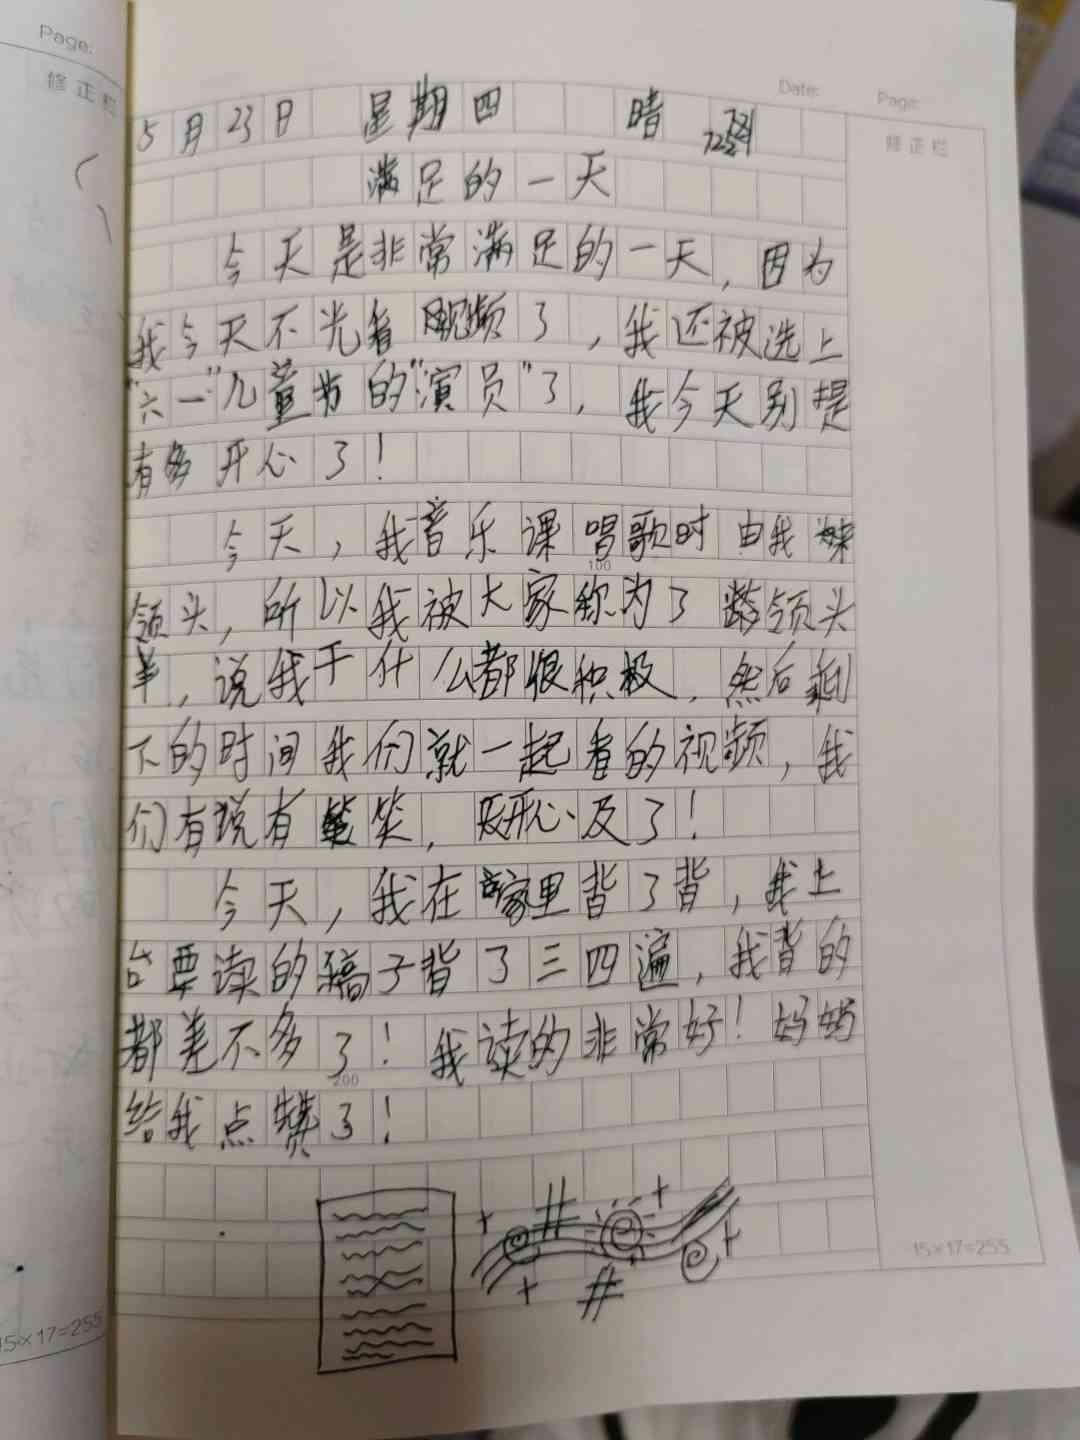 Page:
修正栏
Date: Page:
修正栏
5月23日 星期四 晴
满足的一天
今天是非常满足的一天，因为
我今天不光看视频了，我还被选上
"六一"儿童节的"演员"了，我今天别提
有多开心了！
今天，我音乐课唱歌时由我来
100
领头，所以我被大家称为了领头
羊，说我干什么都很积极，然后剩
下的时间我们就一起看的视频，我
们有说有笑，开心及了！
今天，我在家里背了背，我上
台要读的稿子背了三四遍，我背的
都差不多了！我读的非常好！妈妈
200
给我点赞了！
15×17=255
15×17=255